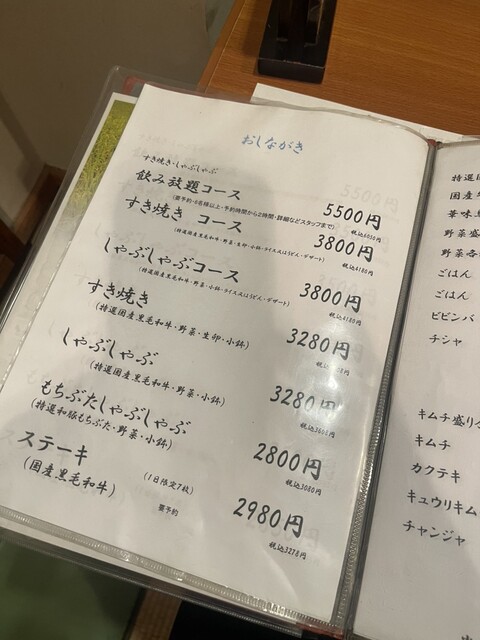 おしながき
すき焼き・しゃぶしゃぶ
飲み放題コース 5500円
(要予約・6名様以上・予約時間から2時間・詳細などスタッフまで) 税込6050円
すき焼き コース 3800円
(特選国産黒毛和牛・野菜・生卵・小鉢・ライス又はうどん・デザート) 税込4180円
しゃぶしゃぶコース 3800円
(特選国産黒毛和牛・野菜・小鉢・ライス又はうどん・デザート) 税込4180円
すき焼き 3280円
(特選国産黒毛和牛・野菜・生卵・小鉢)
しゃぶしゃぶ 3280円
(特選国産黒毛和牛・野菜・小鉢) 税込3608円
もちぶたしゃぶしゃぶ 2800円
(特選和豚もちぶた・野菜・小鉢) 税込3080円
ステーキ (1日限定7枚) 2980円
(国産黒毛和牛) 要予約 税込3278円
特選
国産
華味
野菜盛
野菜各
ごはん
ごはん
ビビンバ
チシャ
キムチ盛り
キムチ
カクテキ
キュウリキム
チャンジャ